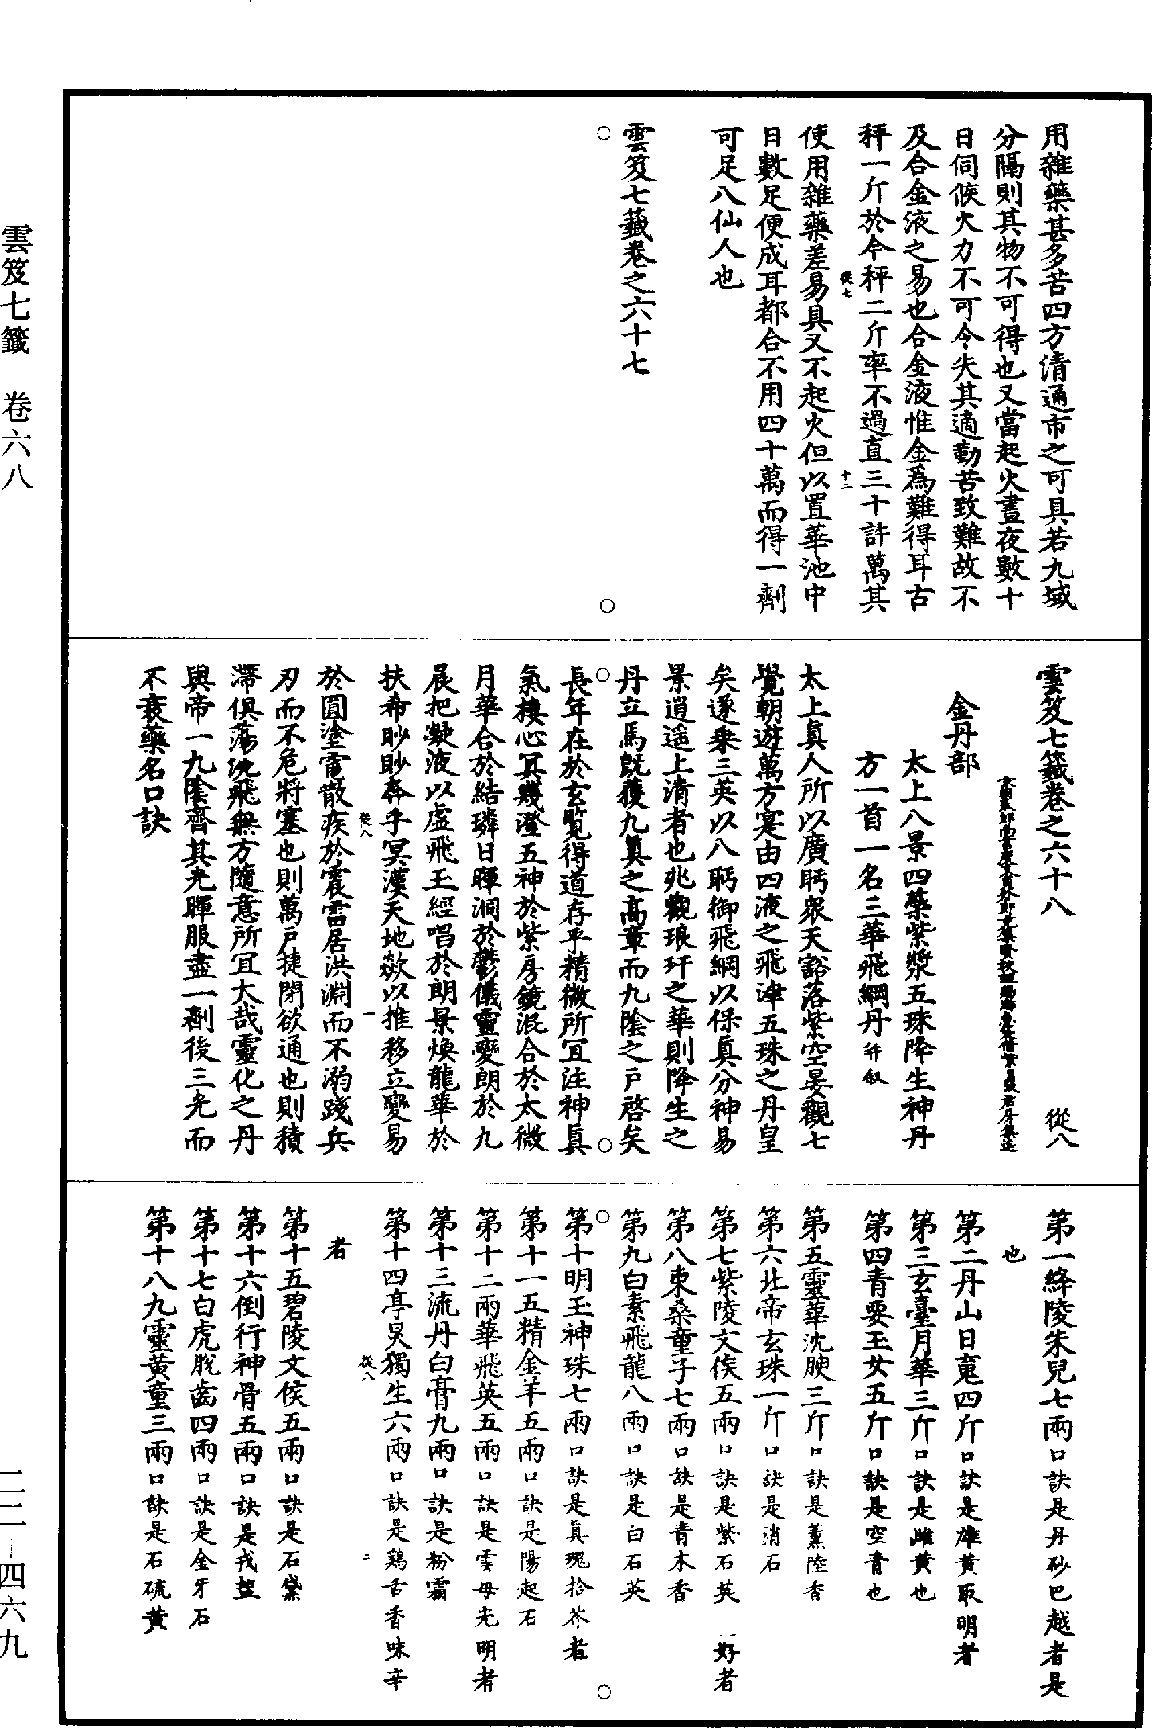 用雜藥甚多苦四方清通市之可具若九域
分隔則其物不可得也又當起火晝夜數十
日伺候火力不可令失其適勤苦致難故不
及合金液之易也合金液惟金爲難得耳古
秤一斤於今秤二斤率不過直三十許萬其
從七 十二
使用雜藥差易具又不起火但以置華池中
日數足便成耳都合不用四十萬而得一劑
可足八仙人也
雲笈七籤卷之六十七
雲笈七籤卷之六十八 從八
金丹部
太上八景四蘂紫漿五珠降生神丹
方一首一名三華飛綱丹并叙
太上真人所以廣眄衆天豁落紫空晏觀七
覺朝遊萬方寔由四液之飛津五珠之丹皇
矣遂乘三英以八眄御飛綱以保真分神易
景逍遥上清者也兆觀琅玕之華則降生之
丹立焉旣獲九真之高章而九陰之戶啓矣
長年在於玄覽得道存乎精微所冝注神真
氣棲心冥幾澄五神於紫房鏡混合於太微
月華合於結璘日暉洞於鬱儀靈變朗於九
晨把凝液以虛飛玉經唱於朗景煥龍華於
扶希眇眇奔乎冥漢天地歘以推移立變易
從八 一
於圓塗雷散疾於震雷居洪淵而不溺踐兵
刃而不危將塞也則萬戶捷閉欲通也則積
滯俱蕩沈飛無方隨意所冝大哉靈化之丹
與帝一九陰齊其光暉服盡一劑後三光而
不衰藥名口訣
第一絳陵朱兒七兩口訣是丹砂巴越者是
也
第二丹山日䰟四斤口訣是雄黃取明者
第三玄臺月華三斤口訣是雌黃也
第四青要玉女五斤口訣是空青也
第五靈華沈腴三斤口訣是薰陸香
第六北帝玄珠一斤口訣是消石
第七紫陵文侯五兩口訣是紫石英好者
第八東桑童子七兩口訣是青木香
第九白素飛龍八兩口訣是白石英
第十明玉神珠七兩口訣是真瑰拾芥者
第十一五精金羊五兩口訣是陽起石
第十二兩華飛英五兩口訣是雲母光明者
第十三流丹白膏九兩口訣是粉霜
第十四亭炅獨生六兩口訣是鷄舌香味辛
從八 二
者
第十五碧陵文侯五兩口訣是石黛
第十六倒行神骨五兩口訣是戎鹽
第十七白虎脫齒四兩口訣是金牙石
第十八九靈黃童三兩口訣是石硫黃
雲笈七籤 卷六八
二二—四六九